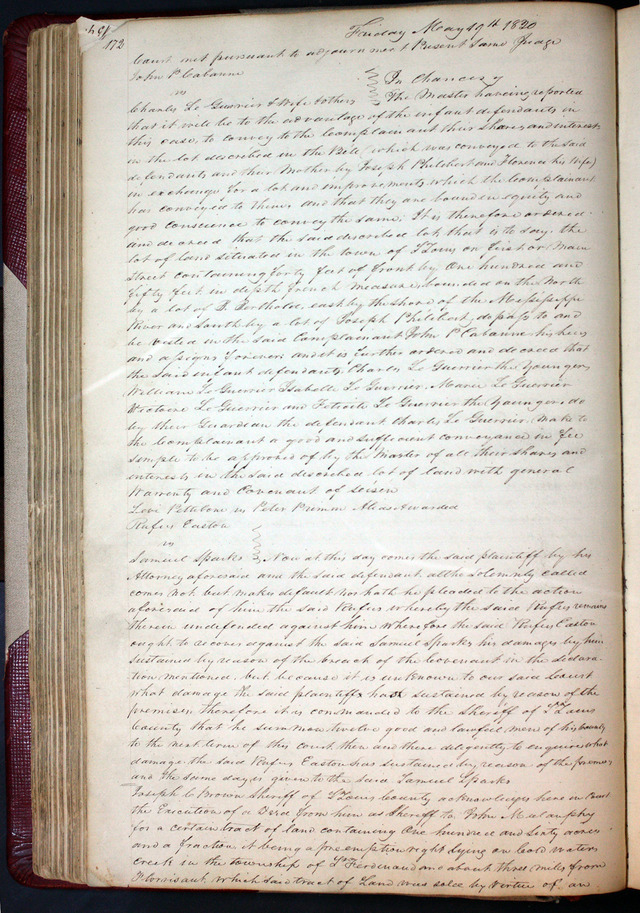 172
Friday May 19th 1820
Court met pursuant to adjournment Present Same Judge
John P Cabanne
vs
In Chancery
Charles Le Guerrier & Wife & others
The Master having reported
that it will be to the advantage of the infant defendants in
this case, to convey to the Complainant their Shares and interests
in the lot described in the Bill, which was conveyed to the said
defendants and their Mother by Joseph Philibert and Florence his Wife,
in exchange for a lot and improvements which the Complainant
has conveyed to them and that they are bound in equity and
good conscience to convey the same; It is therefore ordered
and decreed that the said described lot, that is to say, the
lot of land situated in the town of St Louis on first or Main
Street containing forty feet of front by One hundred and
fifty feet in depth french measure, bounded on the North
by a lot of B. Berthold, east by the shore of the Mississippi
River and South by a lot of Joseph Philibert, do pass to and
be vested in the said Complainant John P Cabanne his heirs
and assigns forever and it is further ordered and decreed that
the said infant defendants Charles Le Guerrier the Younger,
William Le Guerrier Isabella Le Guerrier, Marie Le Guerrier
Le Guerrier and Felicite Le Guerrier the Younger do
by their Guardian the defendant Charles Le Guerrier, make to
the Complainant a good and sufficient conveyance in fee
simple to be approved of by the Master of all their shares and
interests in the said described lot of land with general
Warrenty and Covenant of seisen
Levi Pettibone vs Peter Primm Alias Awarded
Rufus Easton
vs
Samuel Sparks Now at this day comes the said plaintiff by his
Attorney aforesaid and the said defendant altho Solemnly called
comes not but makes default nor hath he pleaded to the action
aforesaid of him the said Rufus whereby the said Rufus remains
therein undefended against him Wherefore the said Rufus Easton
ought to recover against the said Samuel Sparks his damages by him
sustained by reason of the breach of the Covenant in the declara-
tion mentioned. but because it is unknown to our said Court
what damage the said plaintiff hath sustained by reason of the
premises therefore it is commanded to the Sheriff of St Louis
County that he summon twelve good and lawful men of his County
to the next term of this court then and there diligently to enquire what
damage the said Rufus Easton has sustained by reason of the premises
and the same day is given to the said Samuel Sparks
Joseph C Brown Sheriff of St Louis County acknowledges here in Court
the Execution of a Deed from him as Sheriff to John Mulanphy
for a certain tract of land containing One hundred and Sixty acres
and a fraction it being a preemption right lying on Cold water
creek in the Township of St Ferdinand and about three miles from
Florissant, which said tract of Land was sold by virtue of an